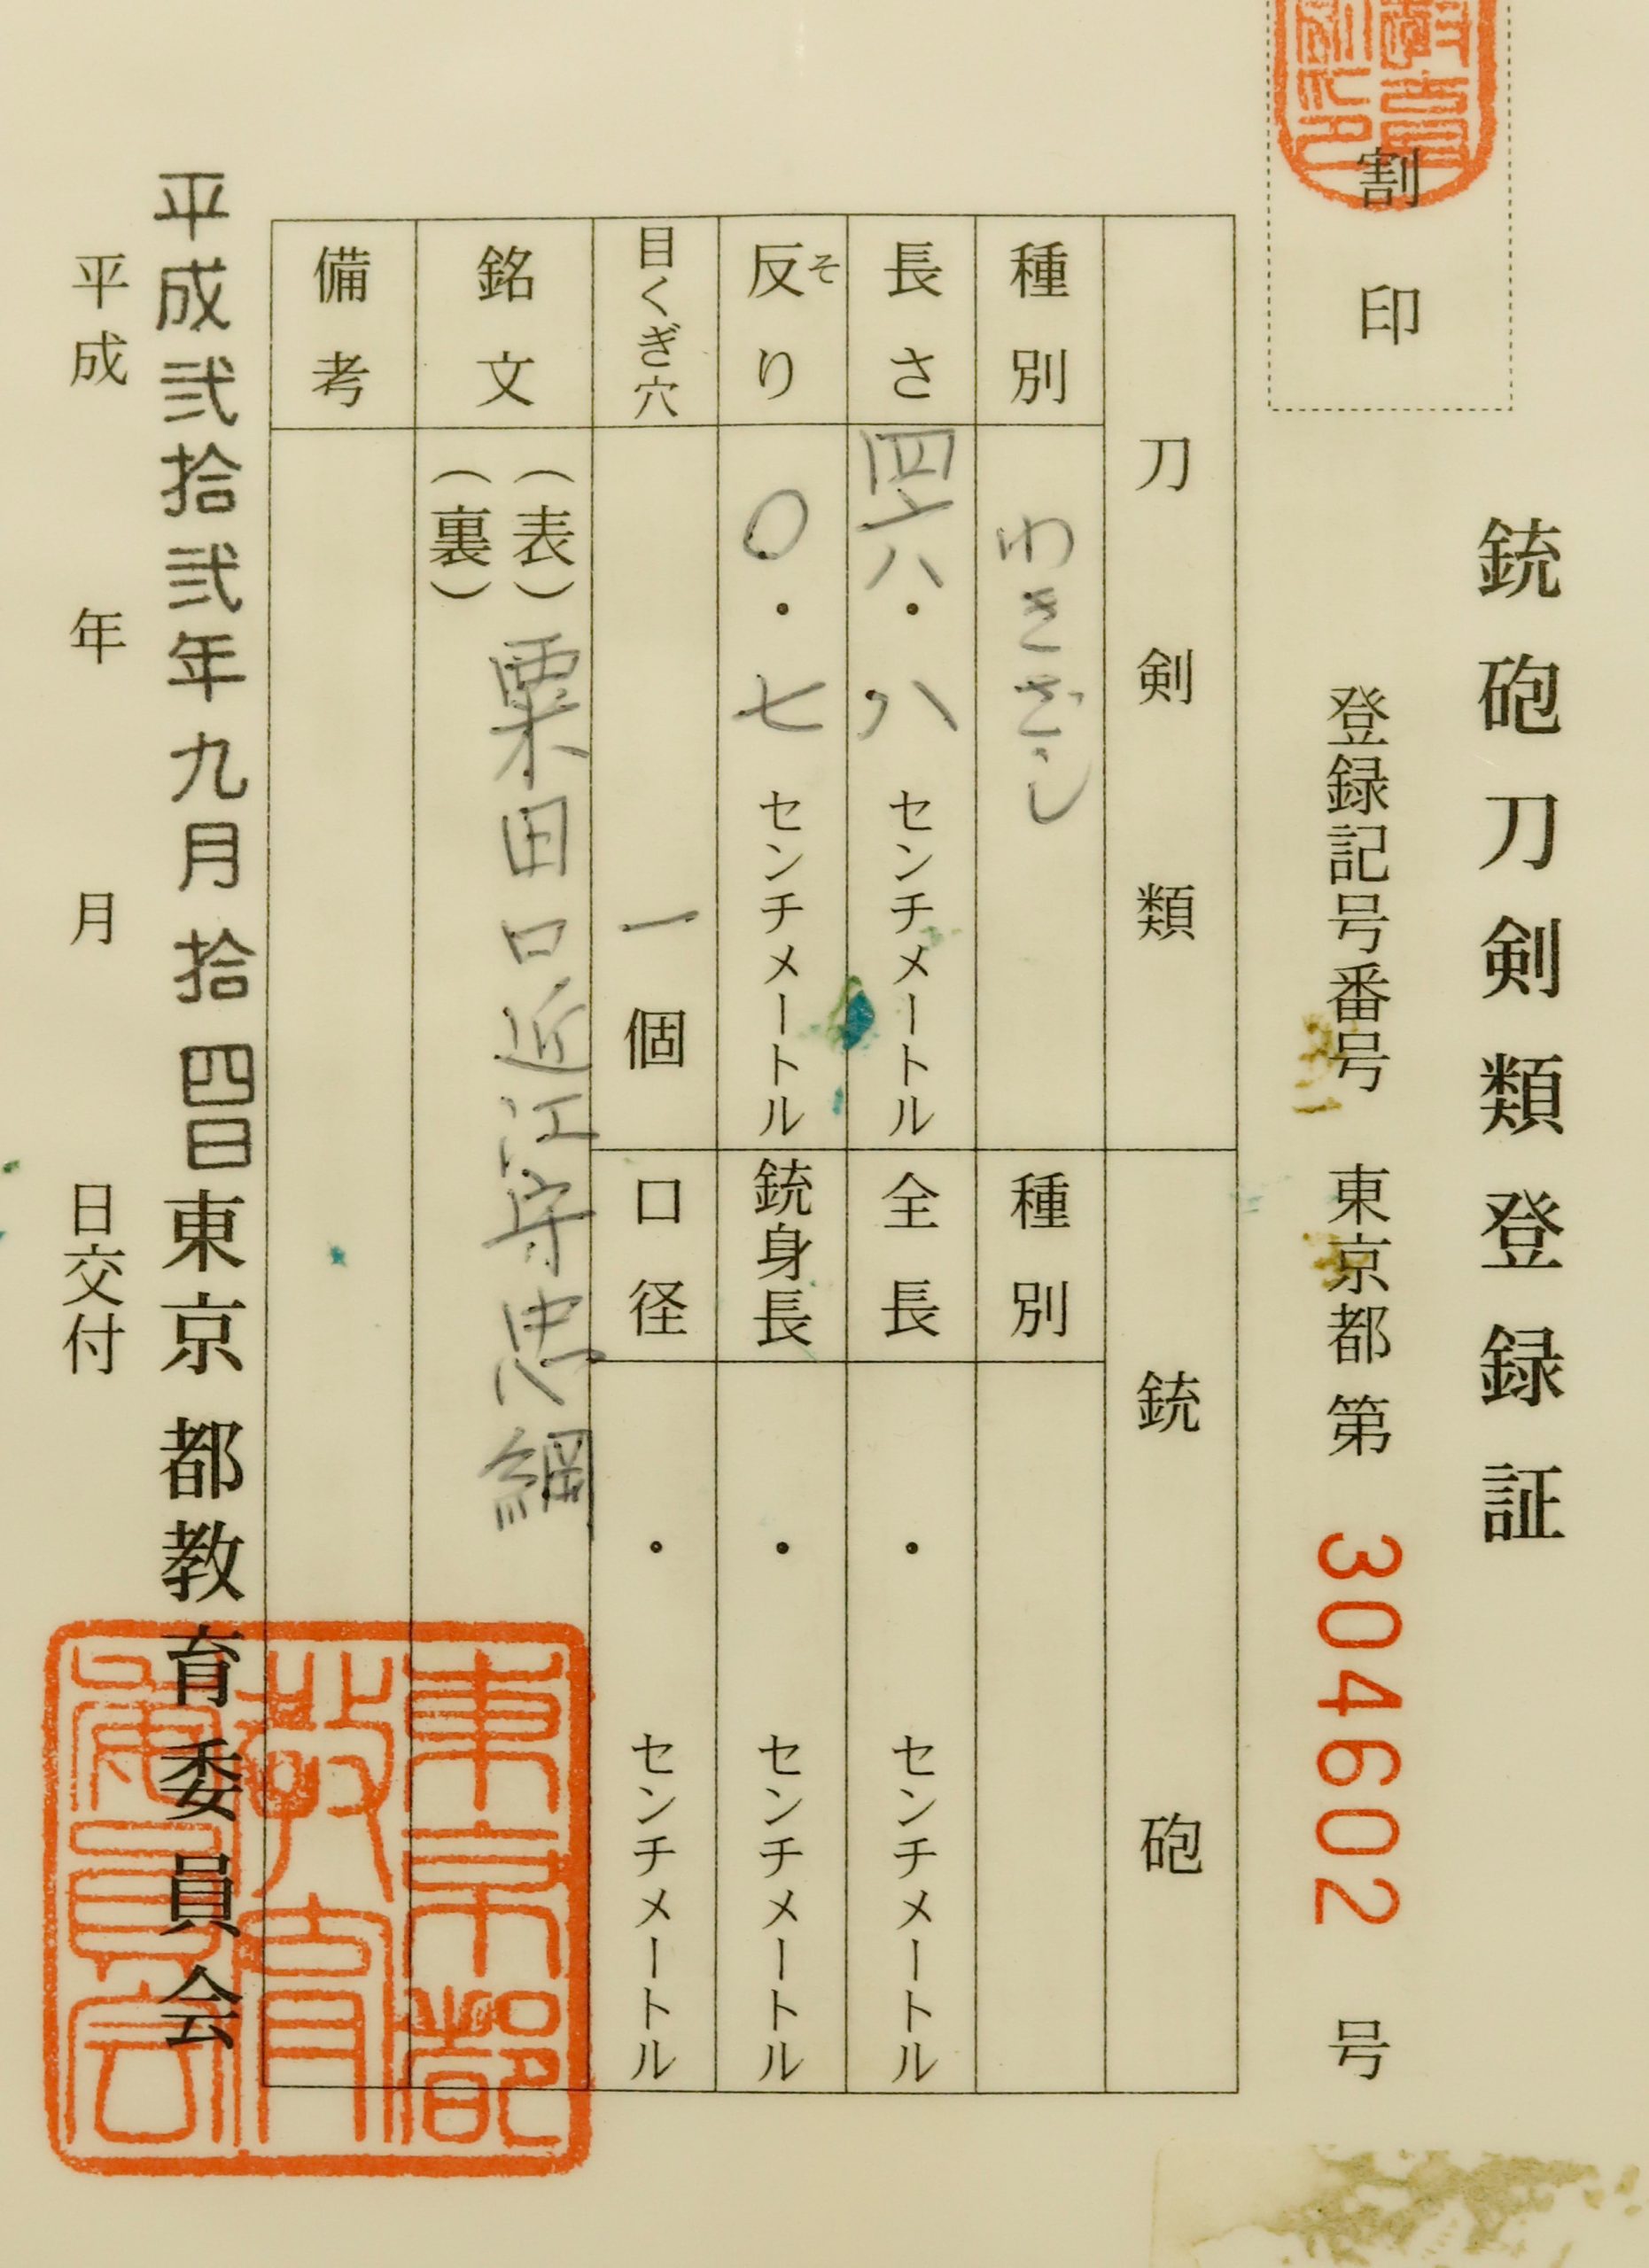 割印
銃砲刀剣類登録証
登録記号番号 東京都 第 304602 号
刀剣類
種別 わきざし
長さ 四六・八 センチメートル
反り そ 〇・七 センチメートル
目くぎ穴 一個
銃砲
種別
全長 ・ センチメートル
銃身長 ・ センチメートル
口径 ・ センチメートル
銘文 (表) 粟田口近江守忠綱
(裏)
備考
平成弐拾弐年九月拾四日 東京都教育委員会
平成 年 月 日交付
東京都
教育
委員会